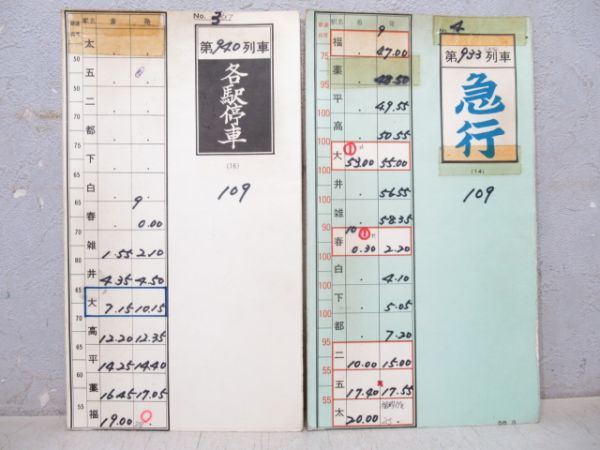 駅名 着 発
太
50
五
二
都
下
白
春 9 0.00
雑 1.55 2.10
井 4.35 4.50
65
大 7.15 10.15
70
高 12.20 12.35
75
平 14.25 14.40
藁 16.45 17.05
55
福 19.00
No. 3
第940列車
各駅停車
(16)
109
駅名 着 発
福 9 47.00
75
藁 48.50
95
平 49.55
100
高 50.55
100
大 ① 53.00 55.00
100
井 56.55
100
雑 58.35
90
春 10 ① 0.30 2.20
100
白 4.10
下 5.05
都 7.20
95
二 10.00 15.00
五 17.40 17.55
55
太 20.00
No. 4
第933列車
急行
(14)
109